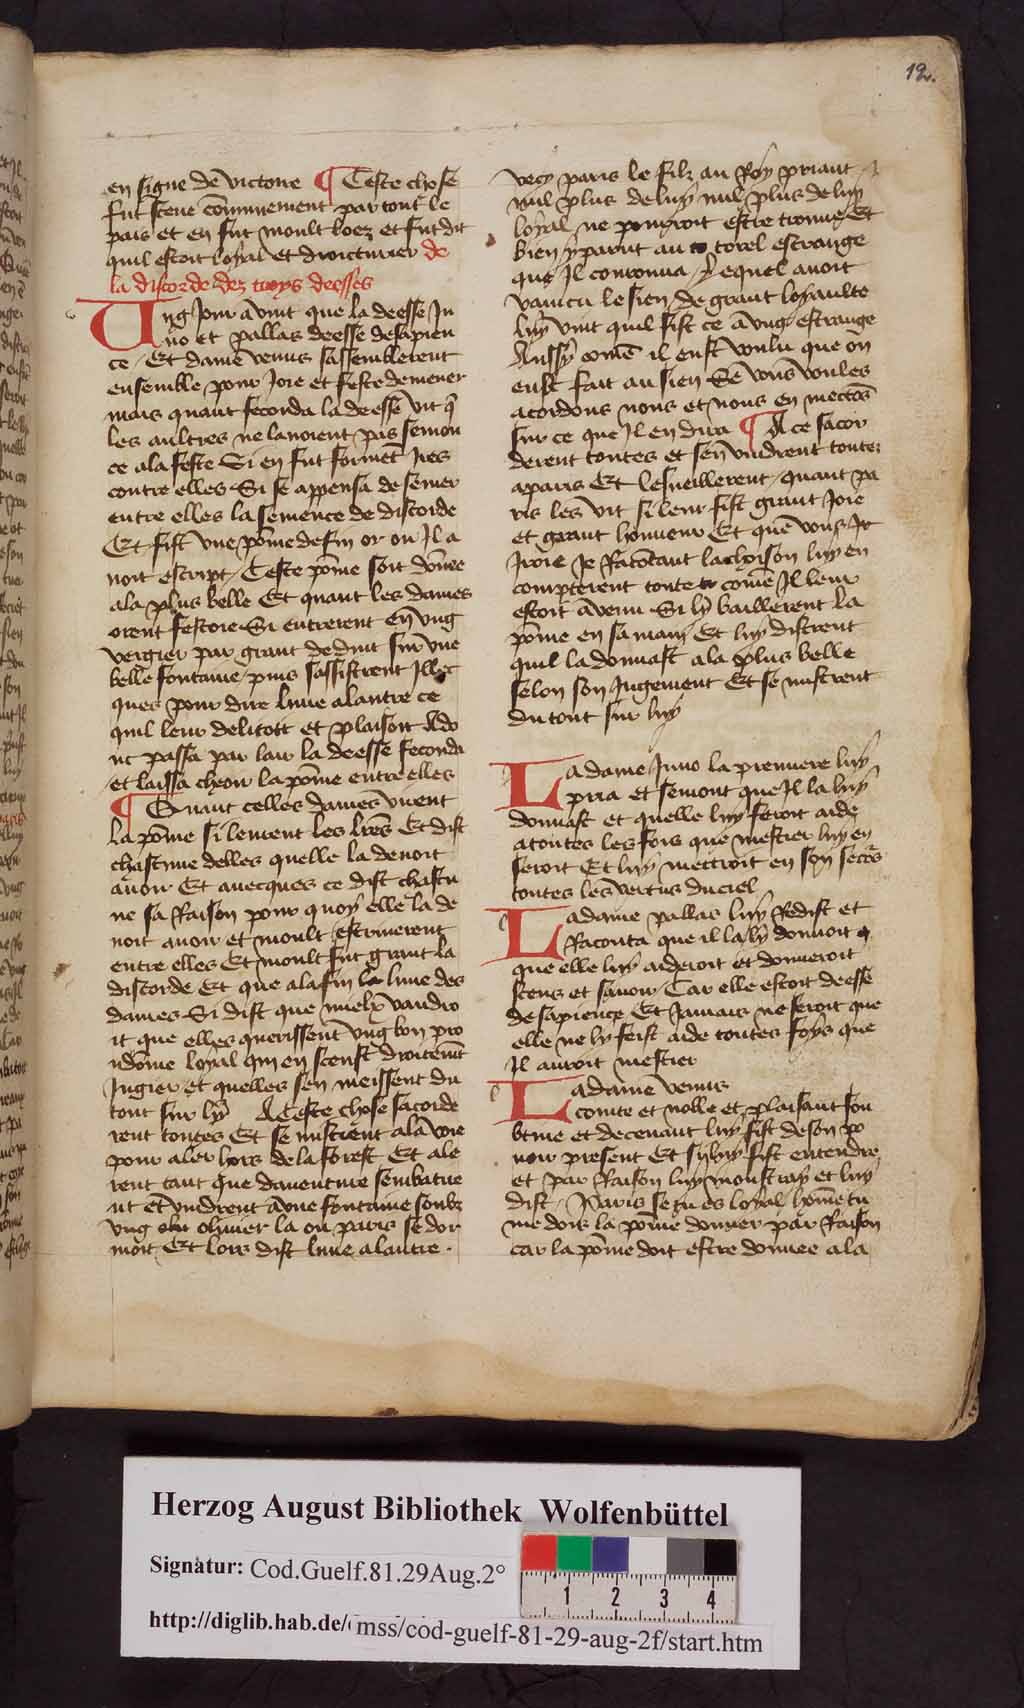 12.
en signe de victoire ¶ Ceste chose
fut sceue cõmunement par tout le
pais et en fut moult loez et fut dit
quil estoit loyal et droicturier de
la discorde dez troys deesses
Ung Jour avint que la deesse Ju
no et pallas deesse de sapien
ce / Et dame venus sassemblerent
ensemble pour Joie et feste demener
mais quant secorda la deesse vit q̃
les aultres ne lavoient pas semon
ce a la feste Si en fut forment Ires
contre elles Si se appensa de semer
entre elles la semence de discorde
Et fist vne põme de fin or ou Il a
uoit escript / Ceste põme soit dõnee
ala plus belle Et quant les dames
orent festoie Si entrerent en vng
vergier par grant deduit sur vne
belle fontaine / puis sassistrent Illec
ques pour dire lune alautre ce
quil leur delitoit et plaisoit Ado
nc passa par lair la deesse secorda
et laissa cheoir la põme entre elles
¶ Quant celles dames virent
la põme si leurent les lr̃es Et dist
chascune delles quelle la deuoit
auoir Et auecques ce dist chascu
ne sa Raison pour quoy elle la de
uoit auoir et moult estriuerent
entre elles Et moult fut grant la
discorde Et que alafin la lune des
dames Si dist que mielx vaudro
it que elles querissent vng bon pro
udõme loyal qui en sceust droitemẽt
Jugier et quelles sen meissent du
tout sur ly A Ceste chose sacorde
rent toutes Et se mistrent ala voie
pour aler hors de la forest Et ale
rent tant que dauenture sembatue
nt et vindrent a vne fontaine soubz
vng oliuier la ou paris se dor
moit Et lors dist lune alautre .
vecy paris le filz au Roy priant
nul plus de luy nul plus de luy
loyal ne pourroit estre trouue Et
bien y parut au torel estrange
que Il couronna / Lequel auoit
vaincu le sien / de grant loyaulte
luy vint quil fist ce a vng estrange
Aussy cõme il eust voulu que on
eust fait au sien Se vous voules
acordons nous et nous en mectõs
sur ce que Il en dira ¶ A ce sacor
derent toutes et sen vindrent toutes
aparis Et lesueillerent / quant pa
ris les vit si leur fist grant Joie
et grant honneur Et que vous Ir
Iroie Je Racõtant lachoison luy en
compterent toute cõme Il leur
estoit avenu Si ly baillerent la
põme en sa main Et luy distrent
quil la donnast ala plus belle
selon son Jugement Et se mistrent
du tout sur luy
La dame Juno la premiere luy
pria et semont que Il la luy
donnast et quelle luy seroit aide
atoutes les fois que mestier luy en
seroit Et luy mectroit en son secõrs
toutes les vertus du ciel
La dame pallas luy Redist et
Raconta que il la ly donnoit
que elle luy aideroit et donneroit
scens et sauoir / Car elle estoit deesse
de sapience Et Jamais ne seroit que
elle ne ly feist aide toutes foys que
Il auroit mestier
La dame venus
cointe et nolle et plaisant sou
btiue et deceuant luy fist de son po
uoir present Et sy luy fist entendre
et par Raison luy monstray et luy
dist / Paris se tu es loyal hõme tu
me dois la põme donner par Raison
car la põme doit estre donnee ala
Herzog August Bibliothek Wolfenbüttel
Signatur: Cod.Guelf.81.29Aug.2°
1 2 3 4
http://diglib.hab.de/mss/cod-guelf-81-29-aug-2f/start.htm